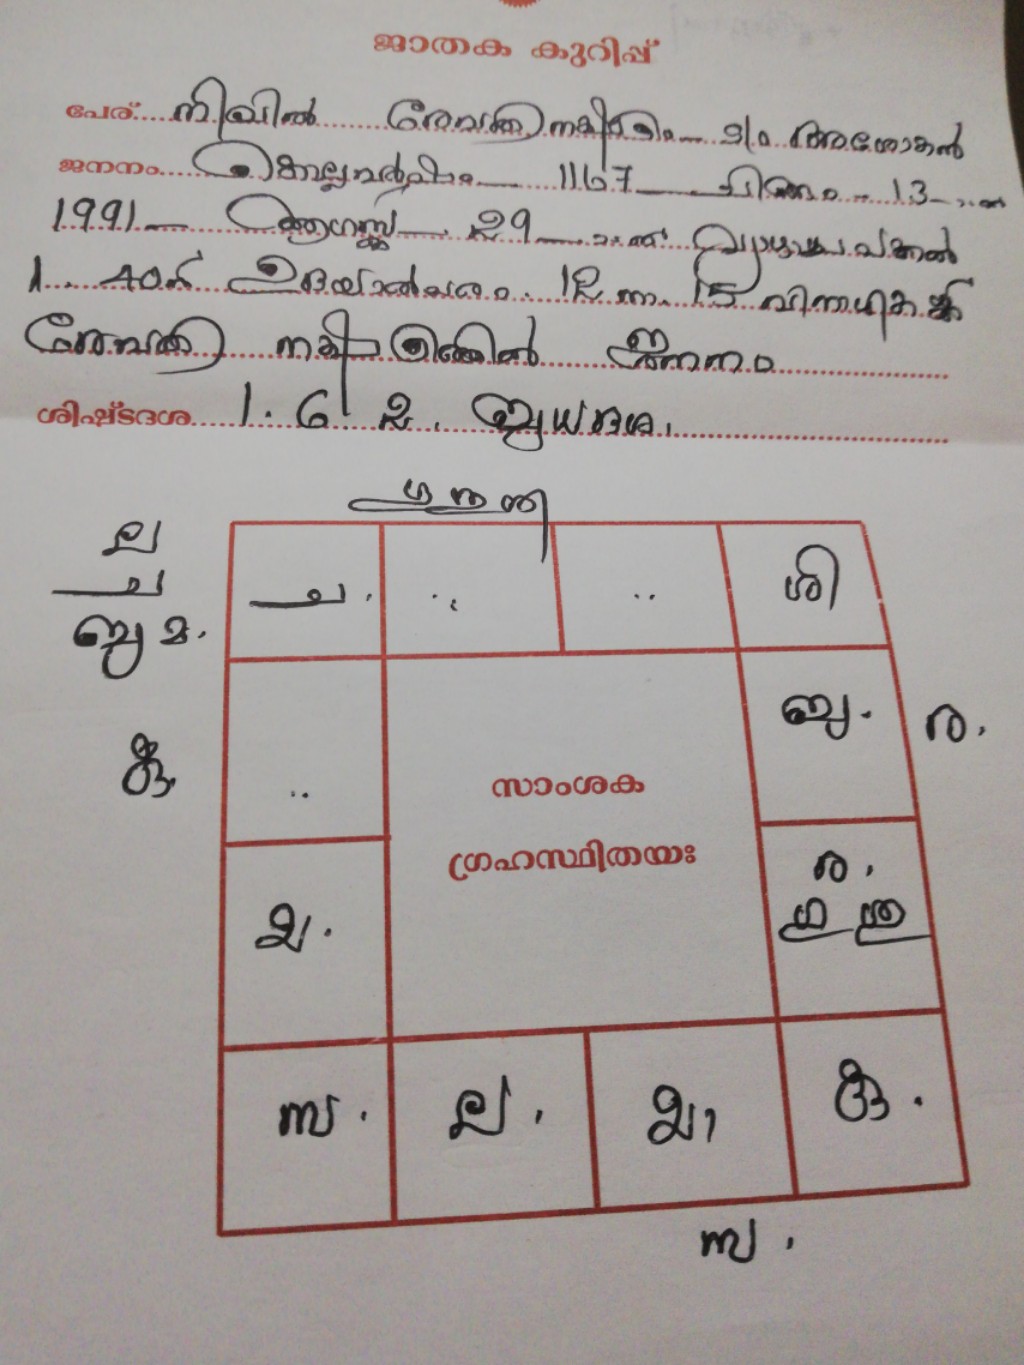 ജാതക കുറിപ്പ്
പേര്. നിഖിൽ രേവതി നക്ഷത്രം S/o അശോകൻ
ജനനം. കൊല്ലവർഷം 1167 ചിങ്ങം 13
1991 ആഗസ്റ്റ് 29 വ്യാഴം പകൽ
1.40ന് ഉദയാൽപരം 18 നാ. 15 വിനാഴികക്ക്
രേവതി നക്ഷത്രത്തിൽ ജനനം
ശിഷ്ടദശ 1. 6 2. ബുധദശ.
ല
ച
ബു മ.
കു
ച.
ശി
ബു.
ര.
സാംശക
ഗ്രഹസ്ഥിതയഃ
ര.
മ.
സ.
ല.
മാ
കു.
സ.